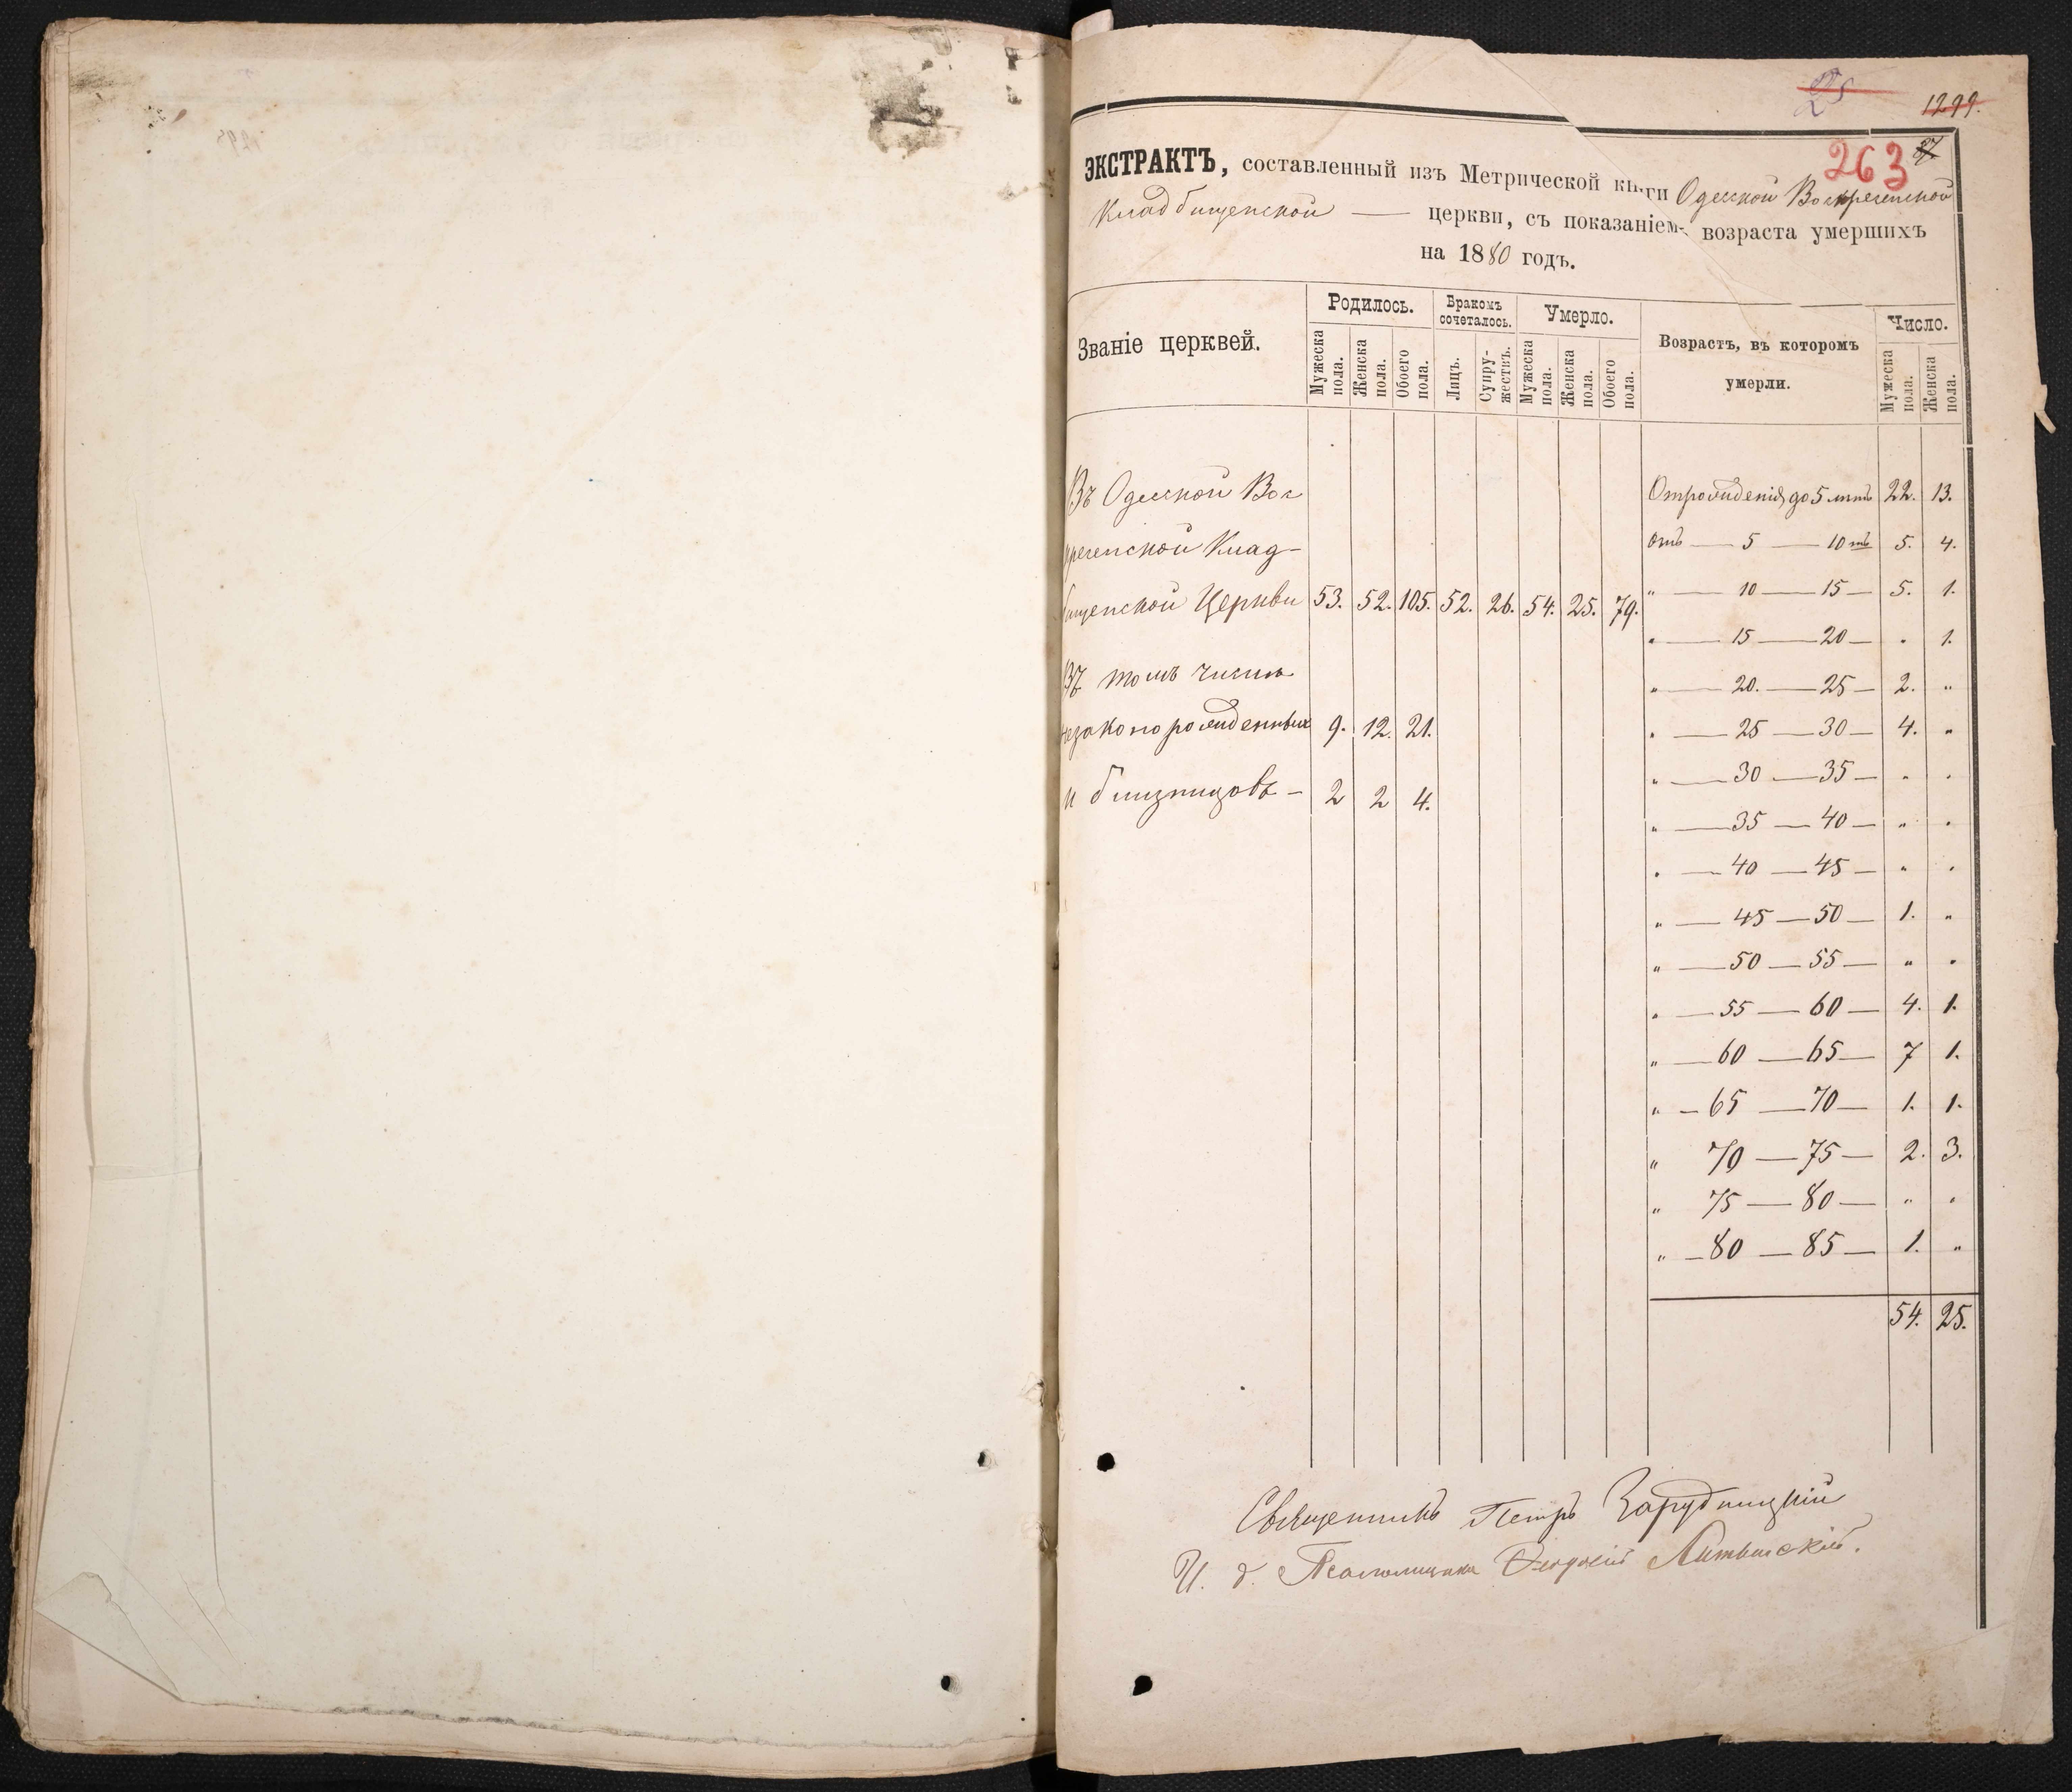 25
1299.
263
ЭКСТРАКТЪ, составленный изъ Метрической книги Одесской Воскресенской
Кладбищенской — церкви, съ показаніемъ возраста умершихъ
на 1880 годъ.
Званіе церквей. Родилось. Бракомъ сочеталось. Умерло. Возрастъ, въ которомъ умерли. Число.
Мужеска пола. Женска пола. Обоего пола. Лицъ. Супружествъ. Мужеска пола. Женска пола. Обоего пола. Мужеска пола. Женска пола.
Въ Одесской Вос
кресенской Клад-
бищенской Церкви 53. 52. 105. 52. 26. 54. 25. 79.
Въ томъ числѣ
незаконорожденныхъ 9. 12. 21.
и близнецовъ - 2 2 4.
Отрожденія до 5 лѣтъ 22. 13.
отъ — 5 — 10 лѣтъ 5. 4.
" — 10 — 15 — 5. 1.
" — 15 — 20 — " 1.
" — 20. — 25 — 2. "
" — 25 — 30 — 4. "
" — 30 — 35 — " "
" — 35 — 40 — " "
" — 40 — 45 — " "
" — 45 — 50 — 1. "
" — 50 — 55 — " "
" — 55 — 60 — 4. 1.
" — 60 — 65 — 7 1.
" — 65 — 70 — 1. 1.
" 70 — 75 — 2. 3.
" 75 — 80 — " "
" — 80 — 85 — 1. "
54. 25.
Священникъ Петръ Зарудницкій
И. д. Псаломщика Ѳеодосій Литвинскій.